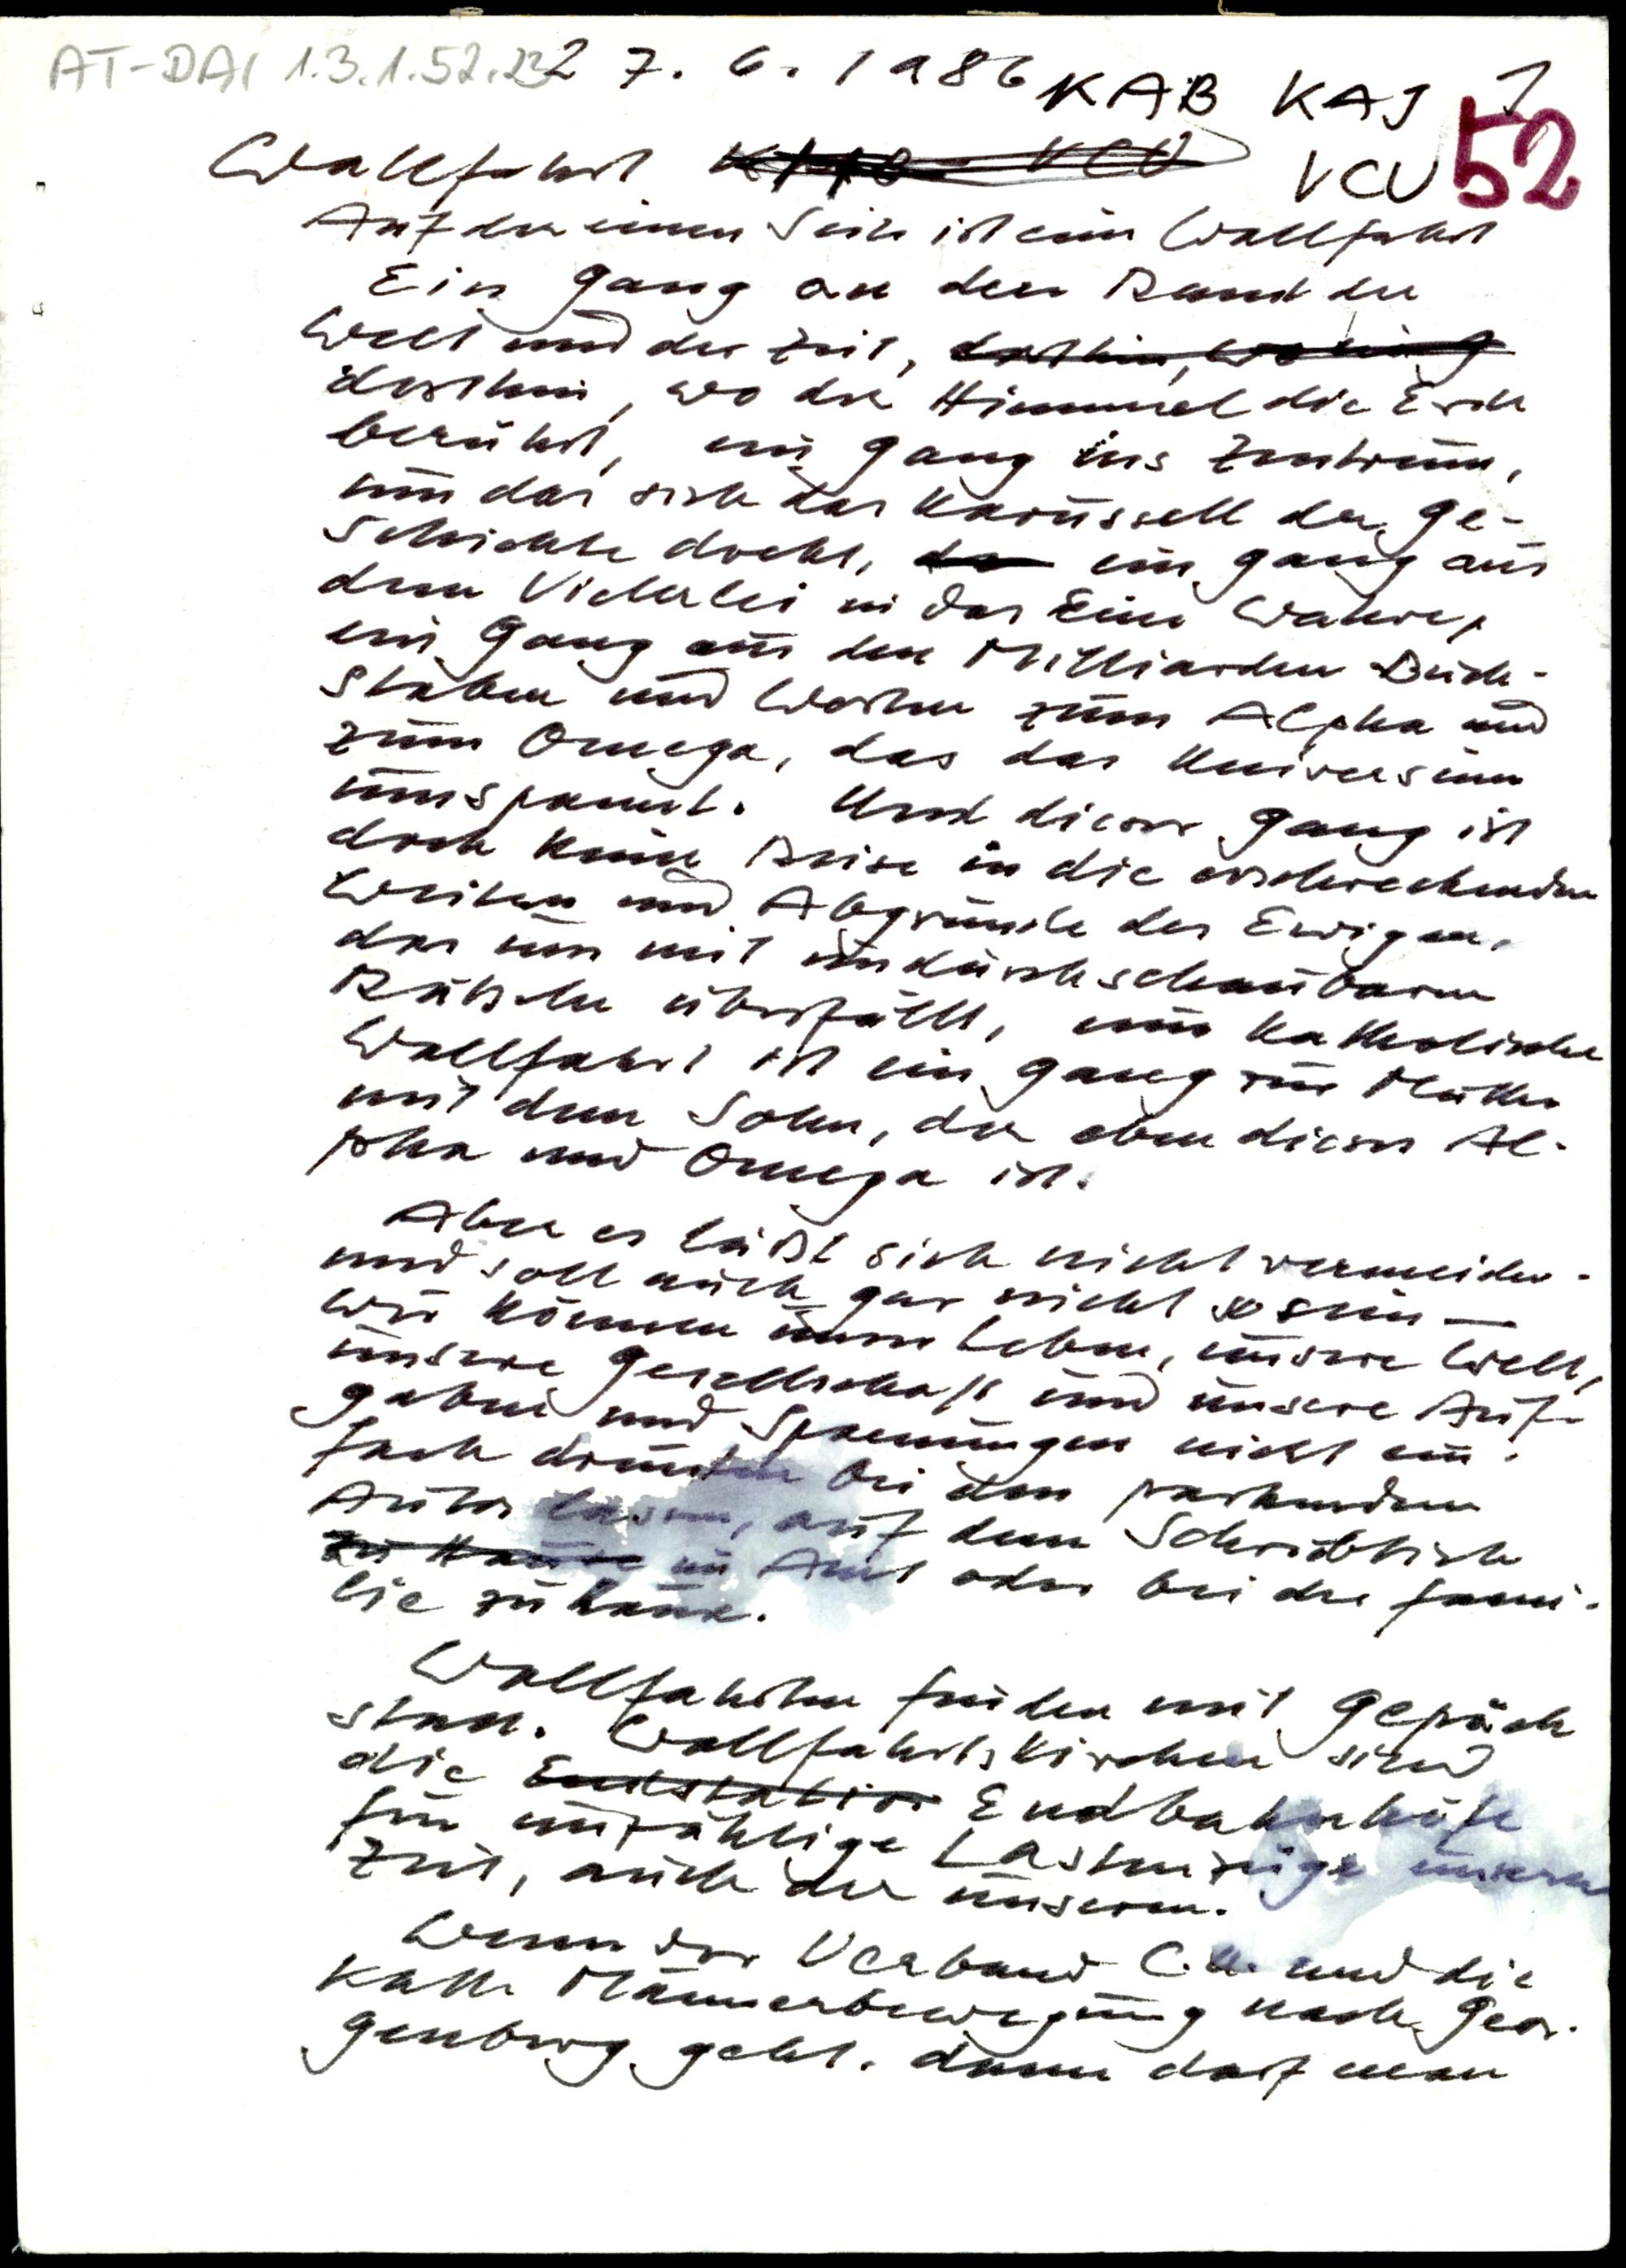 AT-DAI 1.3.1.52.232 7. 6. 1986 KAB KAJ 1
Wallfahrt KMB VCU VCU 52
Auf der einen Seite ist eine Wallfahrt
Ein Gang an den Rand der
Welt und der Zeit, dorthin, wo
dorthin, wo der Himmel die Erde
berührt, ein Gang ins Zentrum,
um das sich das Karussell der Ge-
schichte dreht, ein Gang aus
dem Vielerlei in das Eine Wahre,
ein Gang aus den Milliarden Buch-
staben und Worten zum Alpha und
zum Omega, das das Universum
umspannt. Und dieser Gang ist
doch keine Reise in die erschreckenden
Weiten und Abgründe des Ewigen,
das uns mit undurchschaubaren
Rätseln überfällt, eine katholische
Wallfahrt ist ein Gang zur Mutter
mit dem Sohn, der eben dieses Al-
pha und Omega ist.
Aber es läßt sich nicht vermeiden -
und soll auch gar nicht so sein —
wir können unser Leben, unsere Welt,
unsere Gesellschaft und unsere Auf-
gaben und Spannungen nicht ein-
fach draußen bei den parkenden
Autos lassen, auf dem Schreibtisch
zu Hause im Amt oder bei der Fami-
lie zuhause.
Wallfahrten finden mit Gepäck
statt. Wallfahrtskirchen sind
die Endstation Endbahnhöfe
für unzählige Lastenzüge unserer
Zeit, auch der unseren.
Wenn der Verband C.U. und die
Kath. Männerbewegung nach Geor-
genberg geht, dann darf man